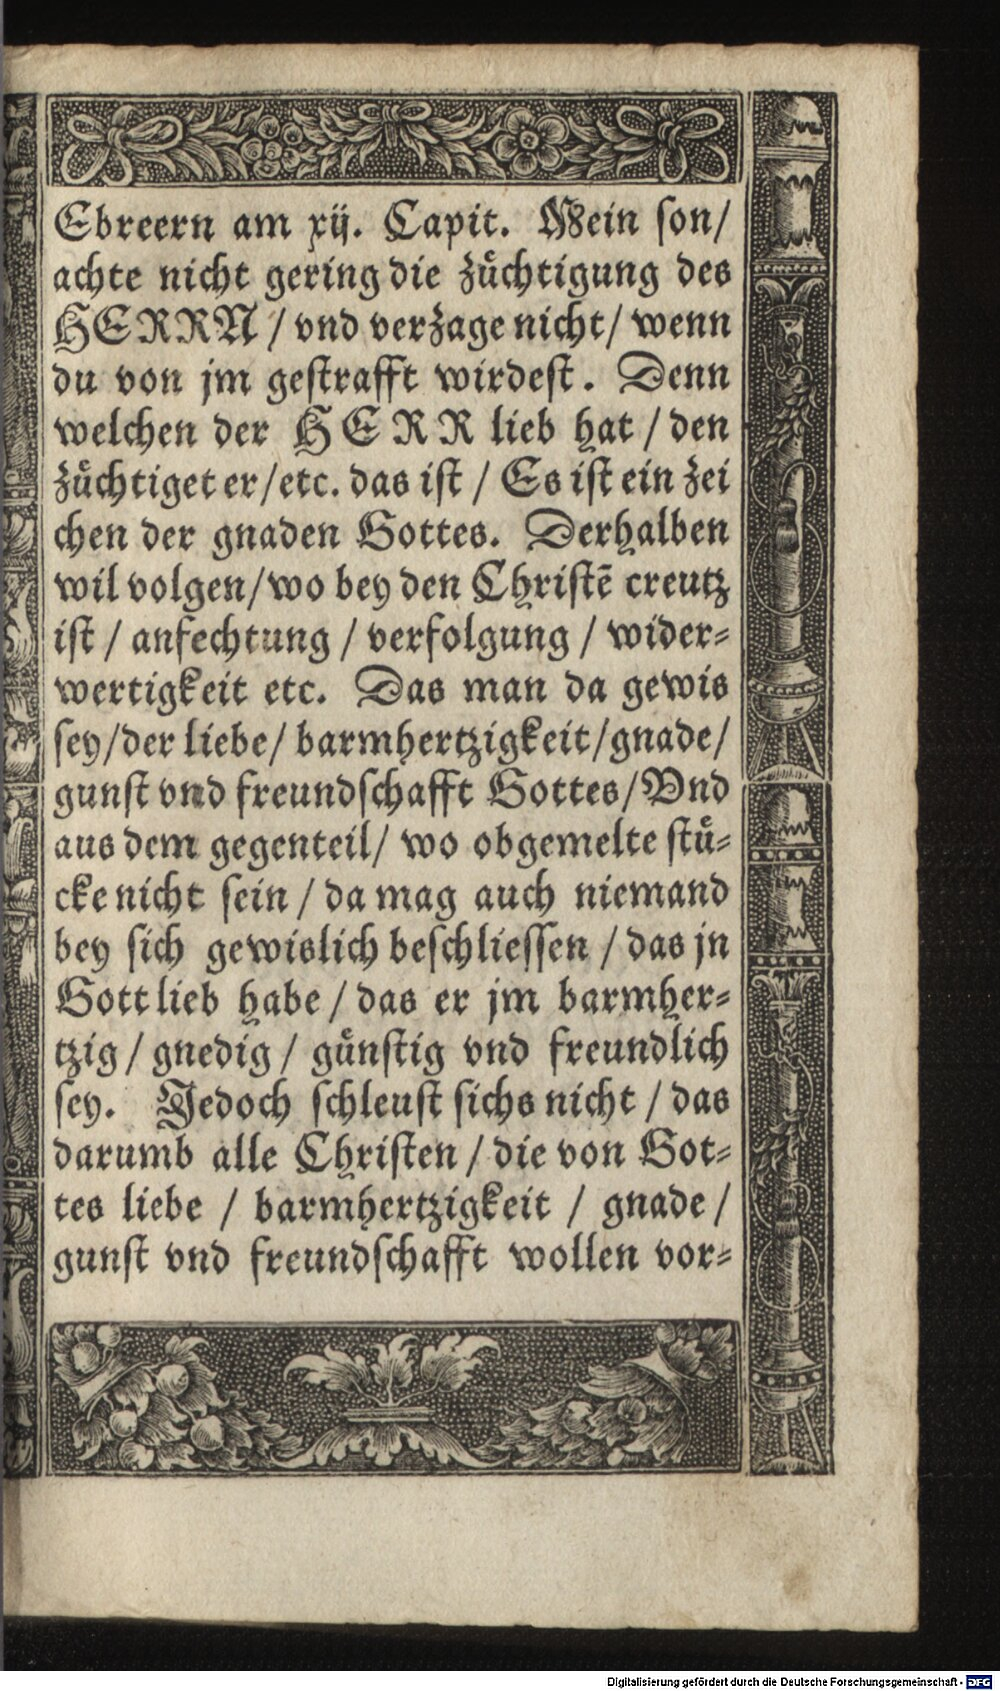 Ebreern am xij. Capit. Mein son/
achte nicht gering die züchtigung des
HERRN / vnd verzage nicht/ wenn
du von jm gestrafft wirdest. Denn
welchen der HERR lieb hat / den
züchtiget er/etc. das ist / Es ist ein zei
chen der gnaden Gottes. Derhalben
wil volgen/wo bey den Christē creutz
ist / anfechtung / verfolgung / wider-
wertigkeit etc. Das man da gewis
sey/der liebe/ barmhertzigkeit/gnade/
gunst vnd freundschafft Gottes/Vnd
aus dem gegenteil/ wo obgemelte stü-
cke nicht sein / da mag auch niemand
bey sich gewislich beschliessen / das jn
Gott lieb habe / das er jm barmher-
tzig / gnedig / günstig vnd freundlich
sey. Jedoch schleust sichs nicht / das
darumb alle Christen / die von Got-
tes liebe / barmhertzigkeit / gnade /
gunst vnd freundschafft wollen vor-
Digitalisierung gefördert durch die Deutsche Forschungsgemeinschaft - DFG